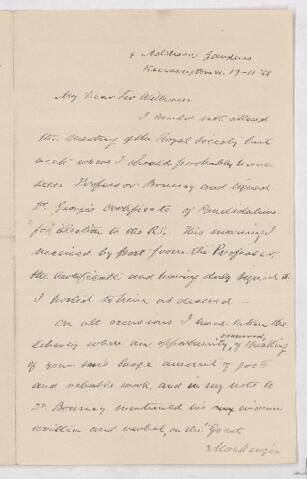 4 Addison Gardens
Kensington W. 19-11-'88
My dear Sir William
I could not attend
the Meeting of the Royal Society last
week where I should probably have
seen Professor Bonney and signed
Dr. George's Certificate of Candidature
for Election to the RS. This morning I
received by post from the Professor,
the Certificate and having duly signed it
I posted to him as desired —
On all occasions I have taken the
liberty where an opportunity occurred, of speaking
of your son's large amount of good
and valuable work, and in my note to
Dr. Bonney mentioned his opinion
written and verbal, on the "Great